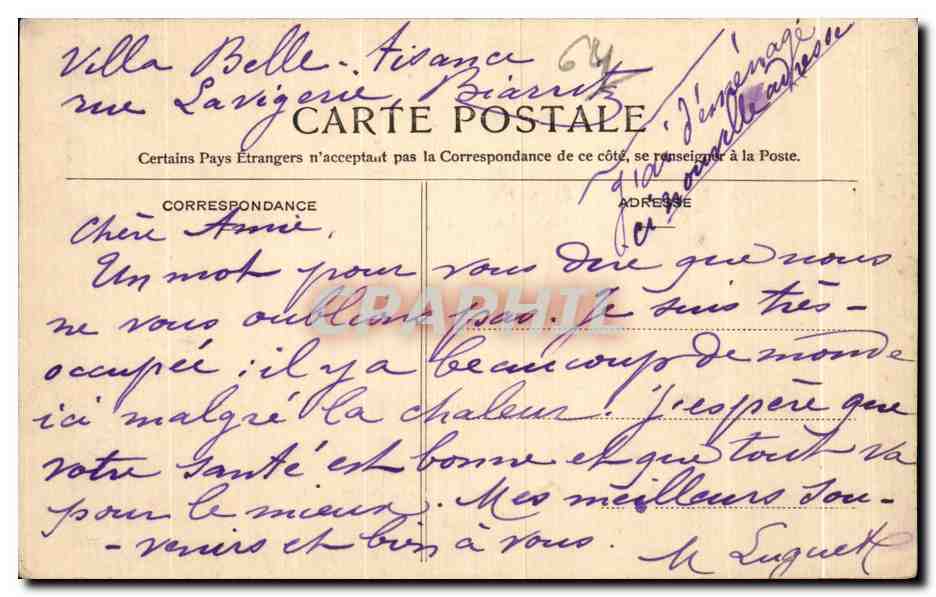 Villa Belle-Aisance
64
rue Lavigerie, Biarritz
J'ai déménagé
ci nouvelle adresse
CARTE POSTALE
Certains Pays Étrangers n'acceptant pas la Correspondance de ce côté, se renseigner à la Poste.
CORRESPONDANCE
ADRESSE
Chère Amie,
Un mot pour vous dire que nous
ne vous oublions pas. Je suis très-
occupée : il y a beaucoup de monde
ici malgré la chaleur. J'espère que
votre santé est bonne et que tout va
pour le mieux. Mes meilleurs sou-
-venirs et bien à vous.
M Luquet
CPAPHIL